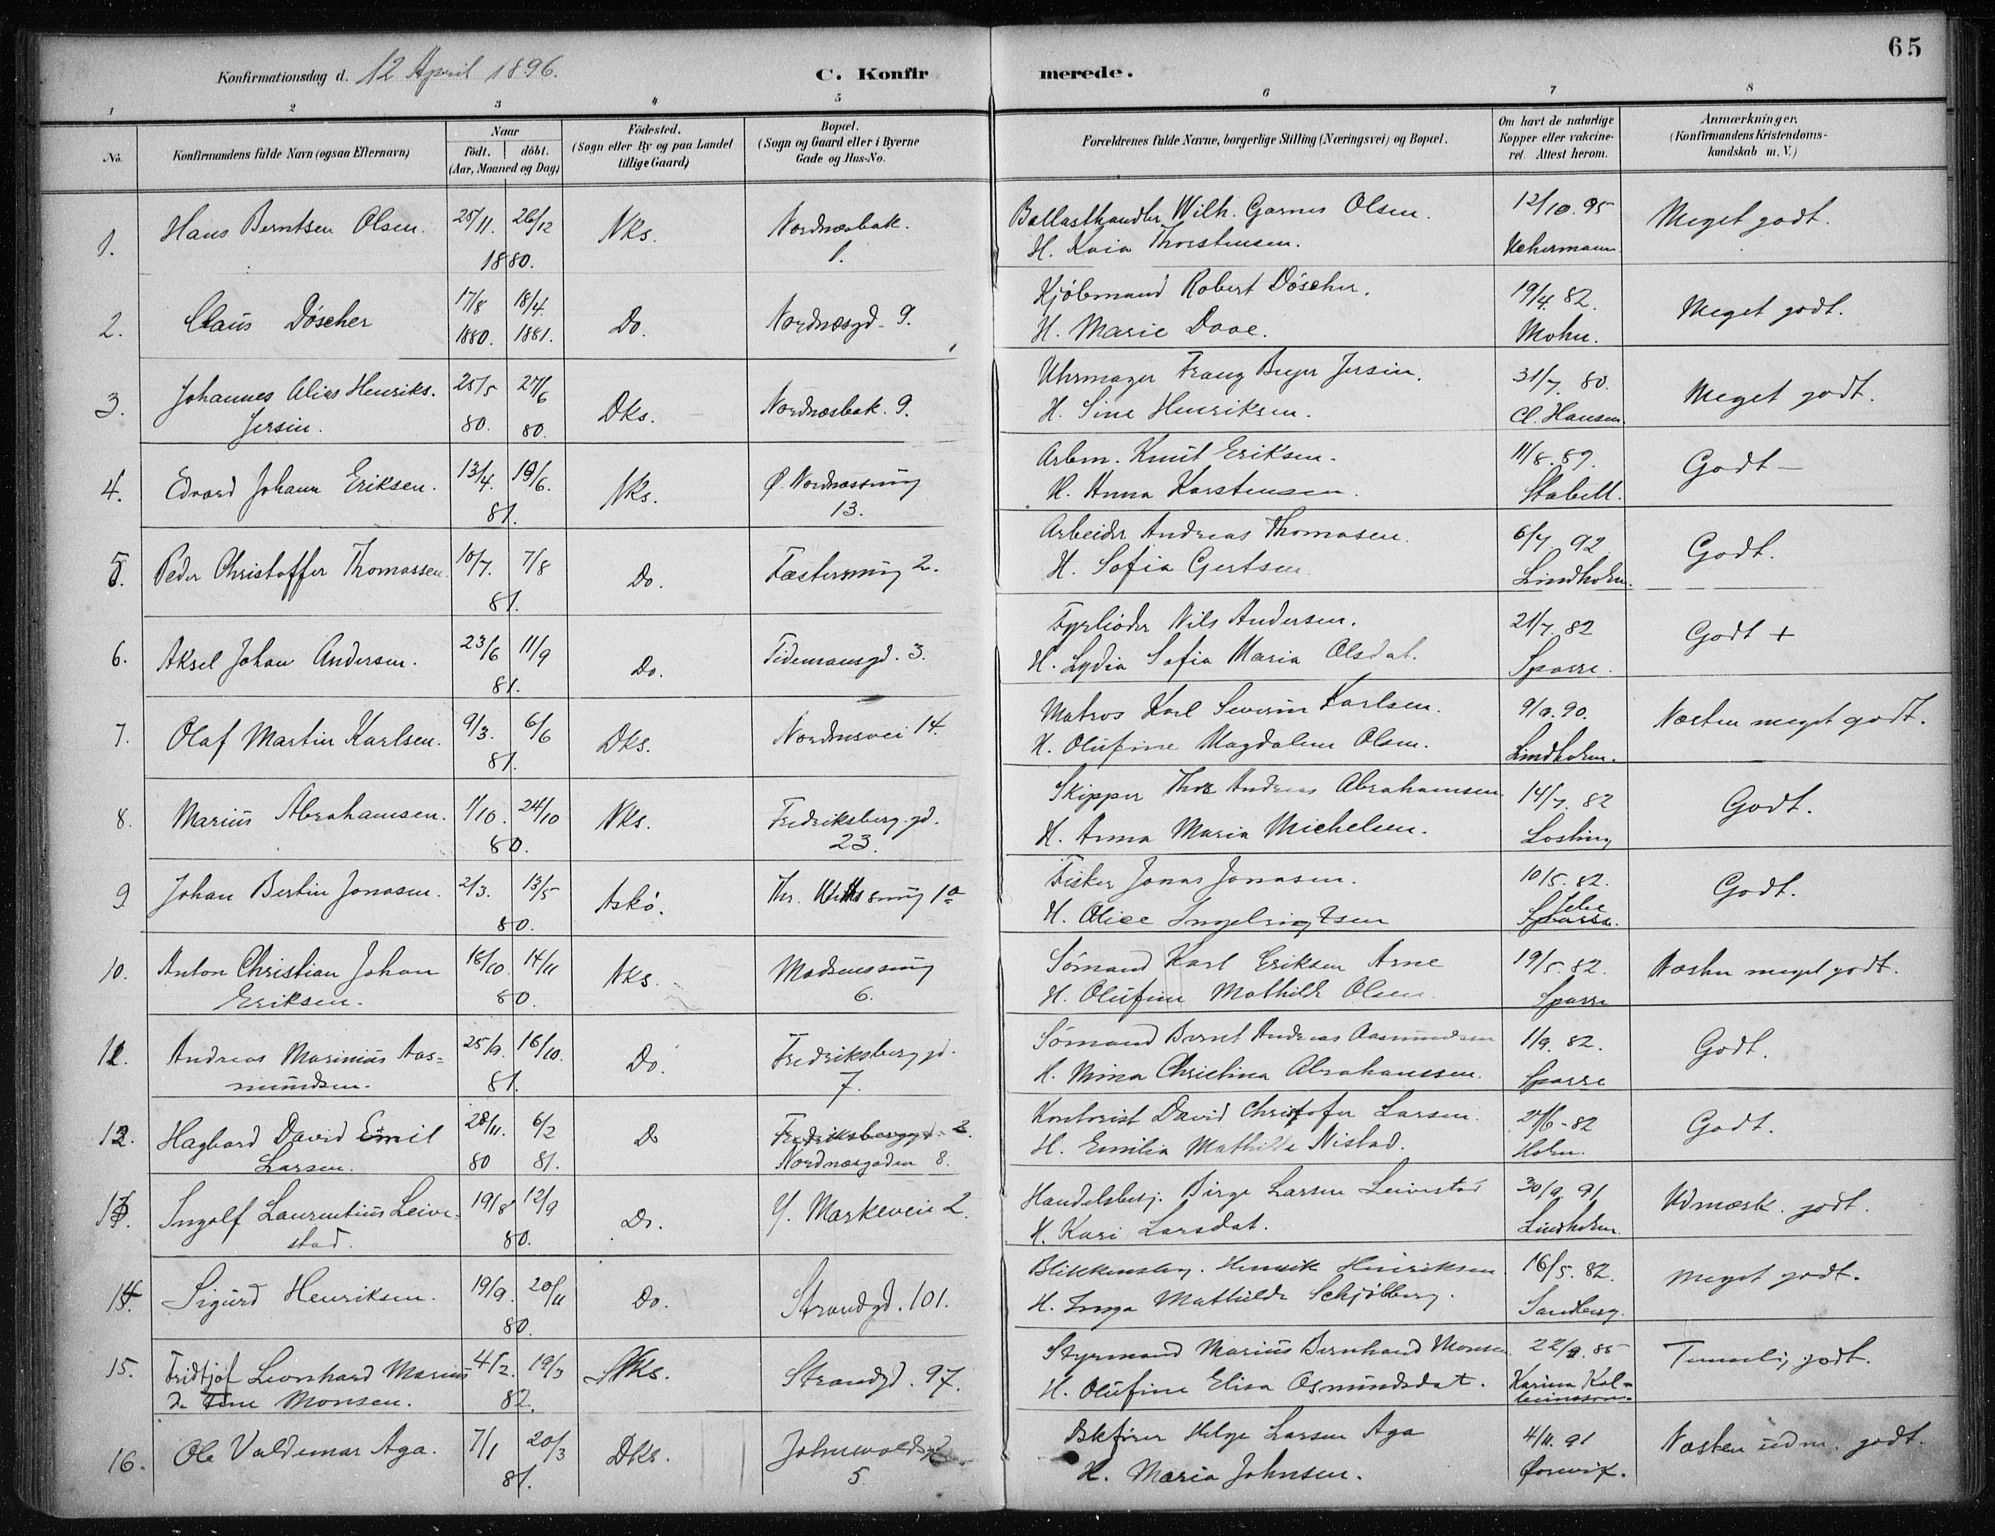 65
Konfirmationsdag d. 12 April 1896.
C. Konfirmerede.
1 2 3 4 5 6 7 8
No.
Konfirmandens fulde Navn (ogsaa Efternavn)
Naar
födt. döbt.
(Aar, Maaned og Dag)
Födested.
(Sogn eller By og paa Landet
tillige Gaard)
Bopæl.
(Sogn og Gaard eller i Byerne
Gade og Hus-No.
Forældrenes fulde Navne, borgerlige Stilling (Næringsvei) og Bopæl.
Om havt de naturlige
Kopper eller vakcine-
ret. Attest herom.
Anmærkninger,
(Konfirmandens Kristendoms-
kundskab m. V.)
1. Hans Berntsen Olsen. 25/11. 26/12 1880. Nks. Nordnæsbak. 1.
Ballasthandler Wilh. Garnes Olsen. 12/10.95 Meget godt.
H. Kaia Thorstensen.
2. Claus Döscher 17/8 1880. 18/4. 1881. Do. Nordnæsgd. 9.
Kjöbmand Robert Döscher. 19/4 82. Meget godt.
H. Marie Dooe. Mohn.
3. Johannes Alias Henriks. 25/5 80. 27/6 80. Dks. Nordnæsbak. 9.
Jersin.
Uhrmager Franz Beyer Jersin. 31/7. 80. Meget godt.
H. Sine Henriksen. Cl. Hansen.
4. Edvard Johann Eriksen. 13/4. 19/6. 81. Nks. Ø. Nordnæssmug 13.
Arbm. Knut Eriksen. 11/8.89. Godt -
H. Anna Karstensen. Stabell.
5. Peder Christoffer Thomassen. 10/7. 7/8 81. Do. Fæstersmug 2.
Arbeider Andreas Thomasen. 6/7 92 Godt.
H. Sofia Gertsen. Lindholm.
6. Aksel Johan Andersen. 23/6 11/9 81. Do. Tidemansgd. 3.
Fyrböder Nils Andersen. 21/7.82 Godt +
H. Lydia Sofia Maria Olsdat. Sparre.
7. Olaf Martin Karlsen. 9/3. 6/6 81. Dks. Nordnæsvei 14.
Matros Karl Severin Karlsen. 90. Næsten meget godt.
H. Olufine Magdalene Olsen. Lindholm.
8. Marius Abrahamsen. 1/10. 24/10 80. Nks. Fredriksberg.gd. 23.
Skipper Andreas Abrahamsen 14/7. 82 Godt.
H. Anna Maria Michelsen. Losting
9. Johan Bertin Jonasen. 2/3. 13/5 80. Askö. smug 1a
Fisker Jonas Jonasen. 10/5.82. Godt.
H. Olice Ingebrigtsen
10. Anton Christian Johan 18/10. 14/11 80. Nks. Madsenssmug 6.
Eriksen.
Sömand Karl Eriksen Arne 19/5.82. Næsten meget godt.
H. Olufine Mathilde Olsen. Sparre
11. Andreas Marinius Aas- 25/9. 16/10. 81. Do. Fredriksberggd. 7.
mundsen.
Sömand Bernt Andreas Aasmundsen 1/9. 82. Godt.
H. Mina Christina Abrahamssen. Sparre
12. Hagbard David Emil 28/11. 80 6/2 81. Do Fredriksberggd. 2.
Larsen. Nordnæsgaden 8.
Kontorist David Christofer Larsen. 82 Godt.
H. Emilia Mathilde Nistad. Holm.
13. Ingolf Laurentius Leive- 19/8 12/9 80. Do. Y. Markeveie 2.
stad.
Handelsberj. Birge Larsen Leivestad 30/9 91 Udmærk. godt.
H. Kari Larsdat. Lindholm.
14. Sigurd Henriksen. 19/9. 20/11 80. Do. Strandgd. 101.
Blikkenslag. Henrik Henriksen. 16/5. 82. Meget godt.
H. Inga Mathilde Schjölberg. Sandberg.
15. Fridtjof Leonhard Marius 4/2. 19/3 82. Nks. Strandgd. 97.
de Fine Monsen.
Styrmand Marius Bernhard Monsen 22/9. 85 Temmelig godt.
H. Olufine Elisa Osmundsdat.
16. Ole Valdemar Aga. 7/1 20/3 81. Dks. 5.
Helge Larsen Aga 4/11.91 Næsten udm. godt.
H. Maria Johnsen.